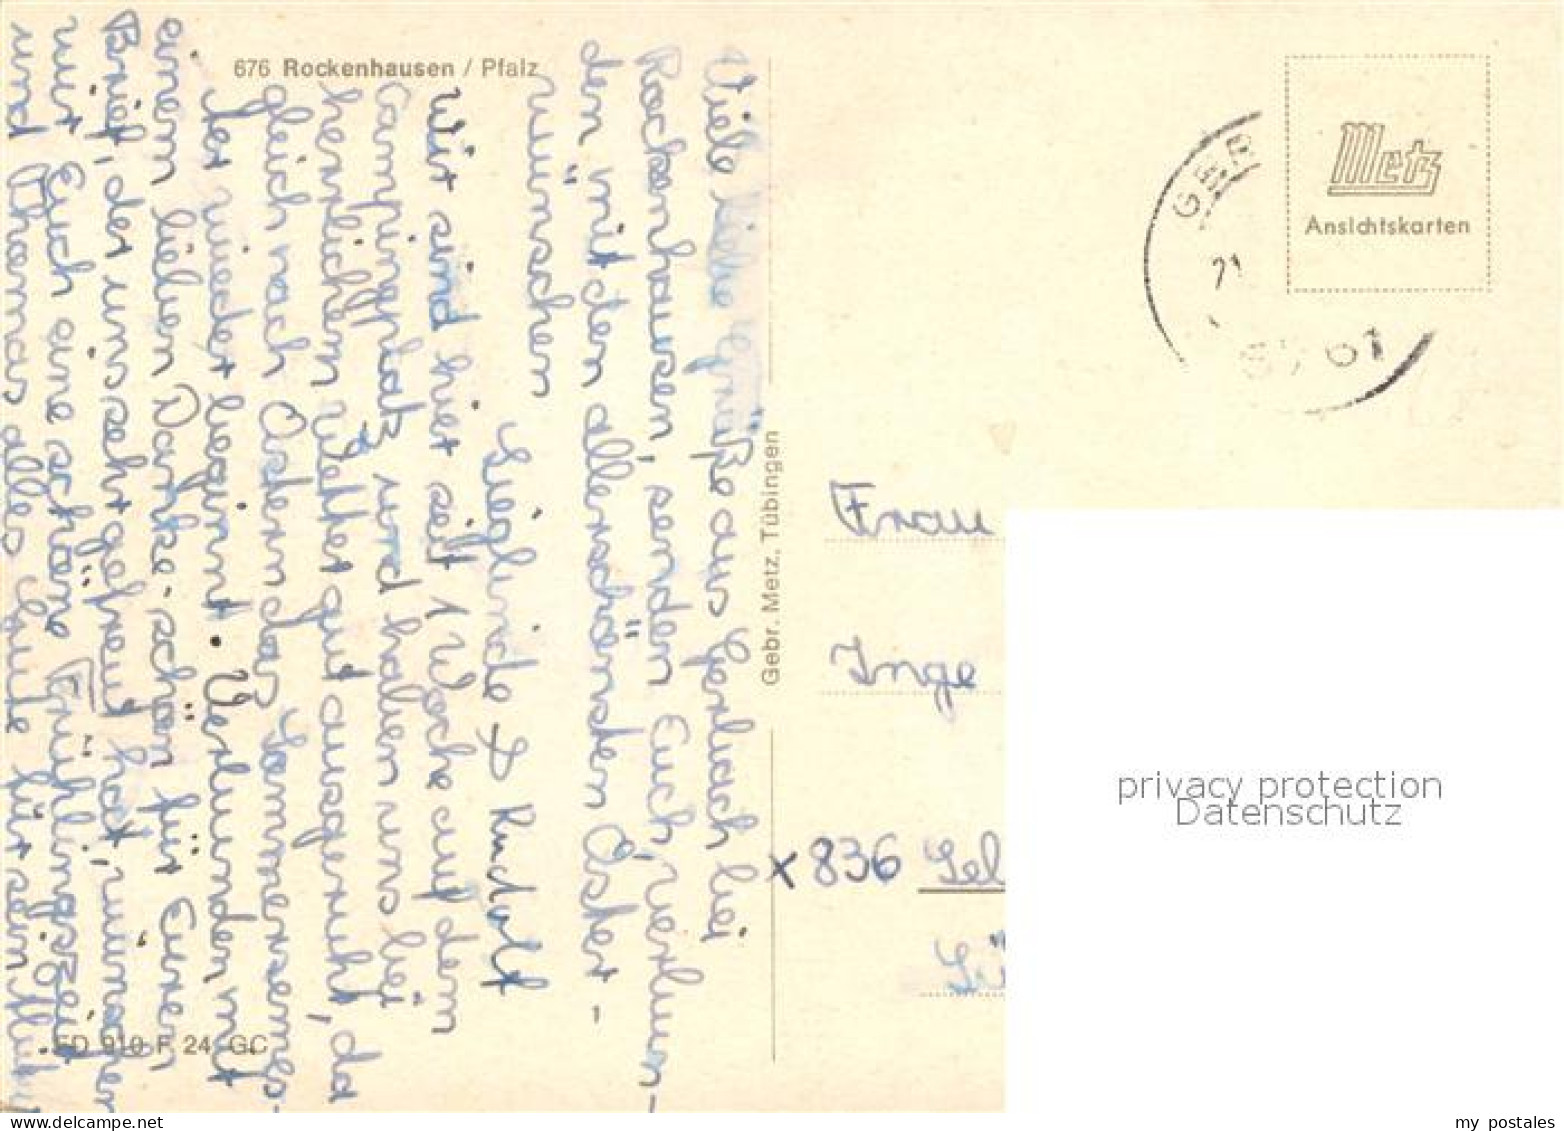 676 Rockenhausen / Pfalz
Viele liebe Grüße aus Gerbach bei
Rockenhausen, senden Euch, verbun-
den mit den allerschönsten Oster-
wünschen
Sieglinde & Rudolf
Wir sind hier seit 1 Woche auf dem
Campingplatz und haben uns bei
herrlichem Wetter gut ausgeruht, da
gleich nach Ostern das Sommersemes-
ter wieder beginnt. Verbunden mit
einem lieben Danke-schön für Euren
Brief, der uns sehr gefreut hat, wünschen
wir Euch eine schöne Frühlingszeit
und Thomas alles Gute für sein
ED 910 F 24 GC
1
Gebr. Metz, Tübingen
Metz
Ansichtskarten
GER
21
6761
Frau
Inge
x 836 Sel
privacy protection
Datenschutz
my_postales